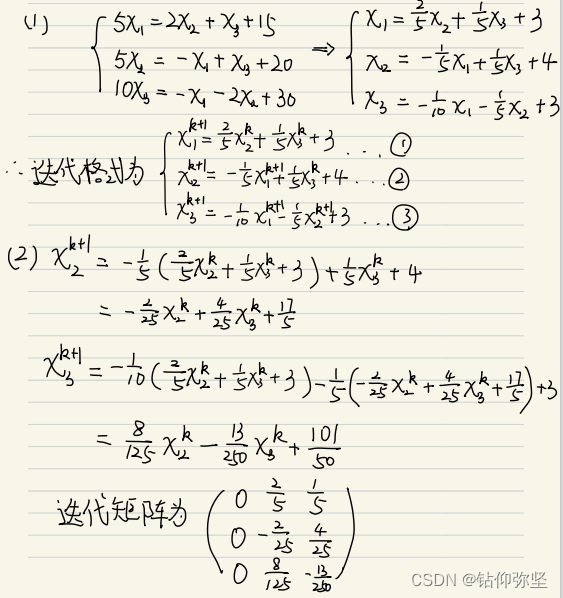 (1) { 5x₁ = 2x₂ + x₃ + 15 ⇒ { x₁ = 2/5 x₂ + 1/5 x₃ + 3
5x₂ = -x₁ + x₃ + 20 x₂ = -1/5 x₁ + 1/5 x₃ + 4
10x₃ = -x₁ - 2x₂ + 30 x₃ = -1/10 x₁ - 1/5 x₂ + 3
∴ 迭代格式为 { x₁^{k+1} = 2/5 x₂^k + 1/5 x₃^k + 3 ... ①
x₂^{k+1} = -1/5 x₁^{k+1} + 1/5 x₃^k + 4 ... ②
x₃^{k+1} = -1/10 x₁^{k+1} - 1/5 x₂^{k+1} + 3 ... ③
(2) x₂^{k+1} = -1/5 (2/5 x₂^k + 1/5 x₃^k + 3) + 1/5 x₃^k + 4
= -2/25 x₂^k + 4/25 x₃^k + 17/5
x₃^{k+1} = -1/10 (2/5 x₂^k + 1/5 x₃^k + 3) - 1/5 (-2/25 x₂^k + 4/25 x₃^k + 17/5) + 3
= 8/125 x₂^k - 13/250 x₃^k + 101/50
迭代矩阵为 ( 0 2/5 1/5
0 -2/25 4/25
0 8/125 -13/250 )
CSDN @钻仰弥坚